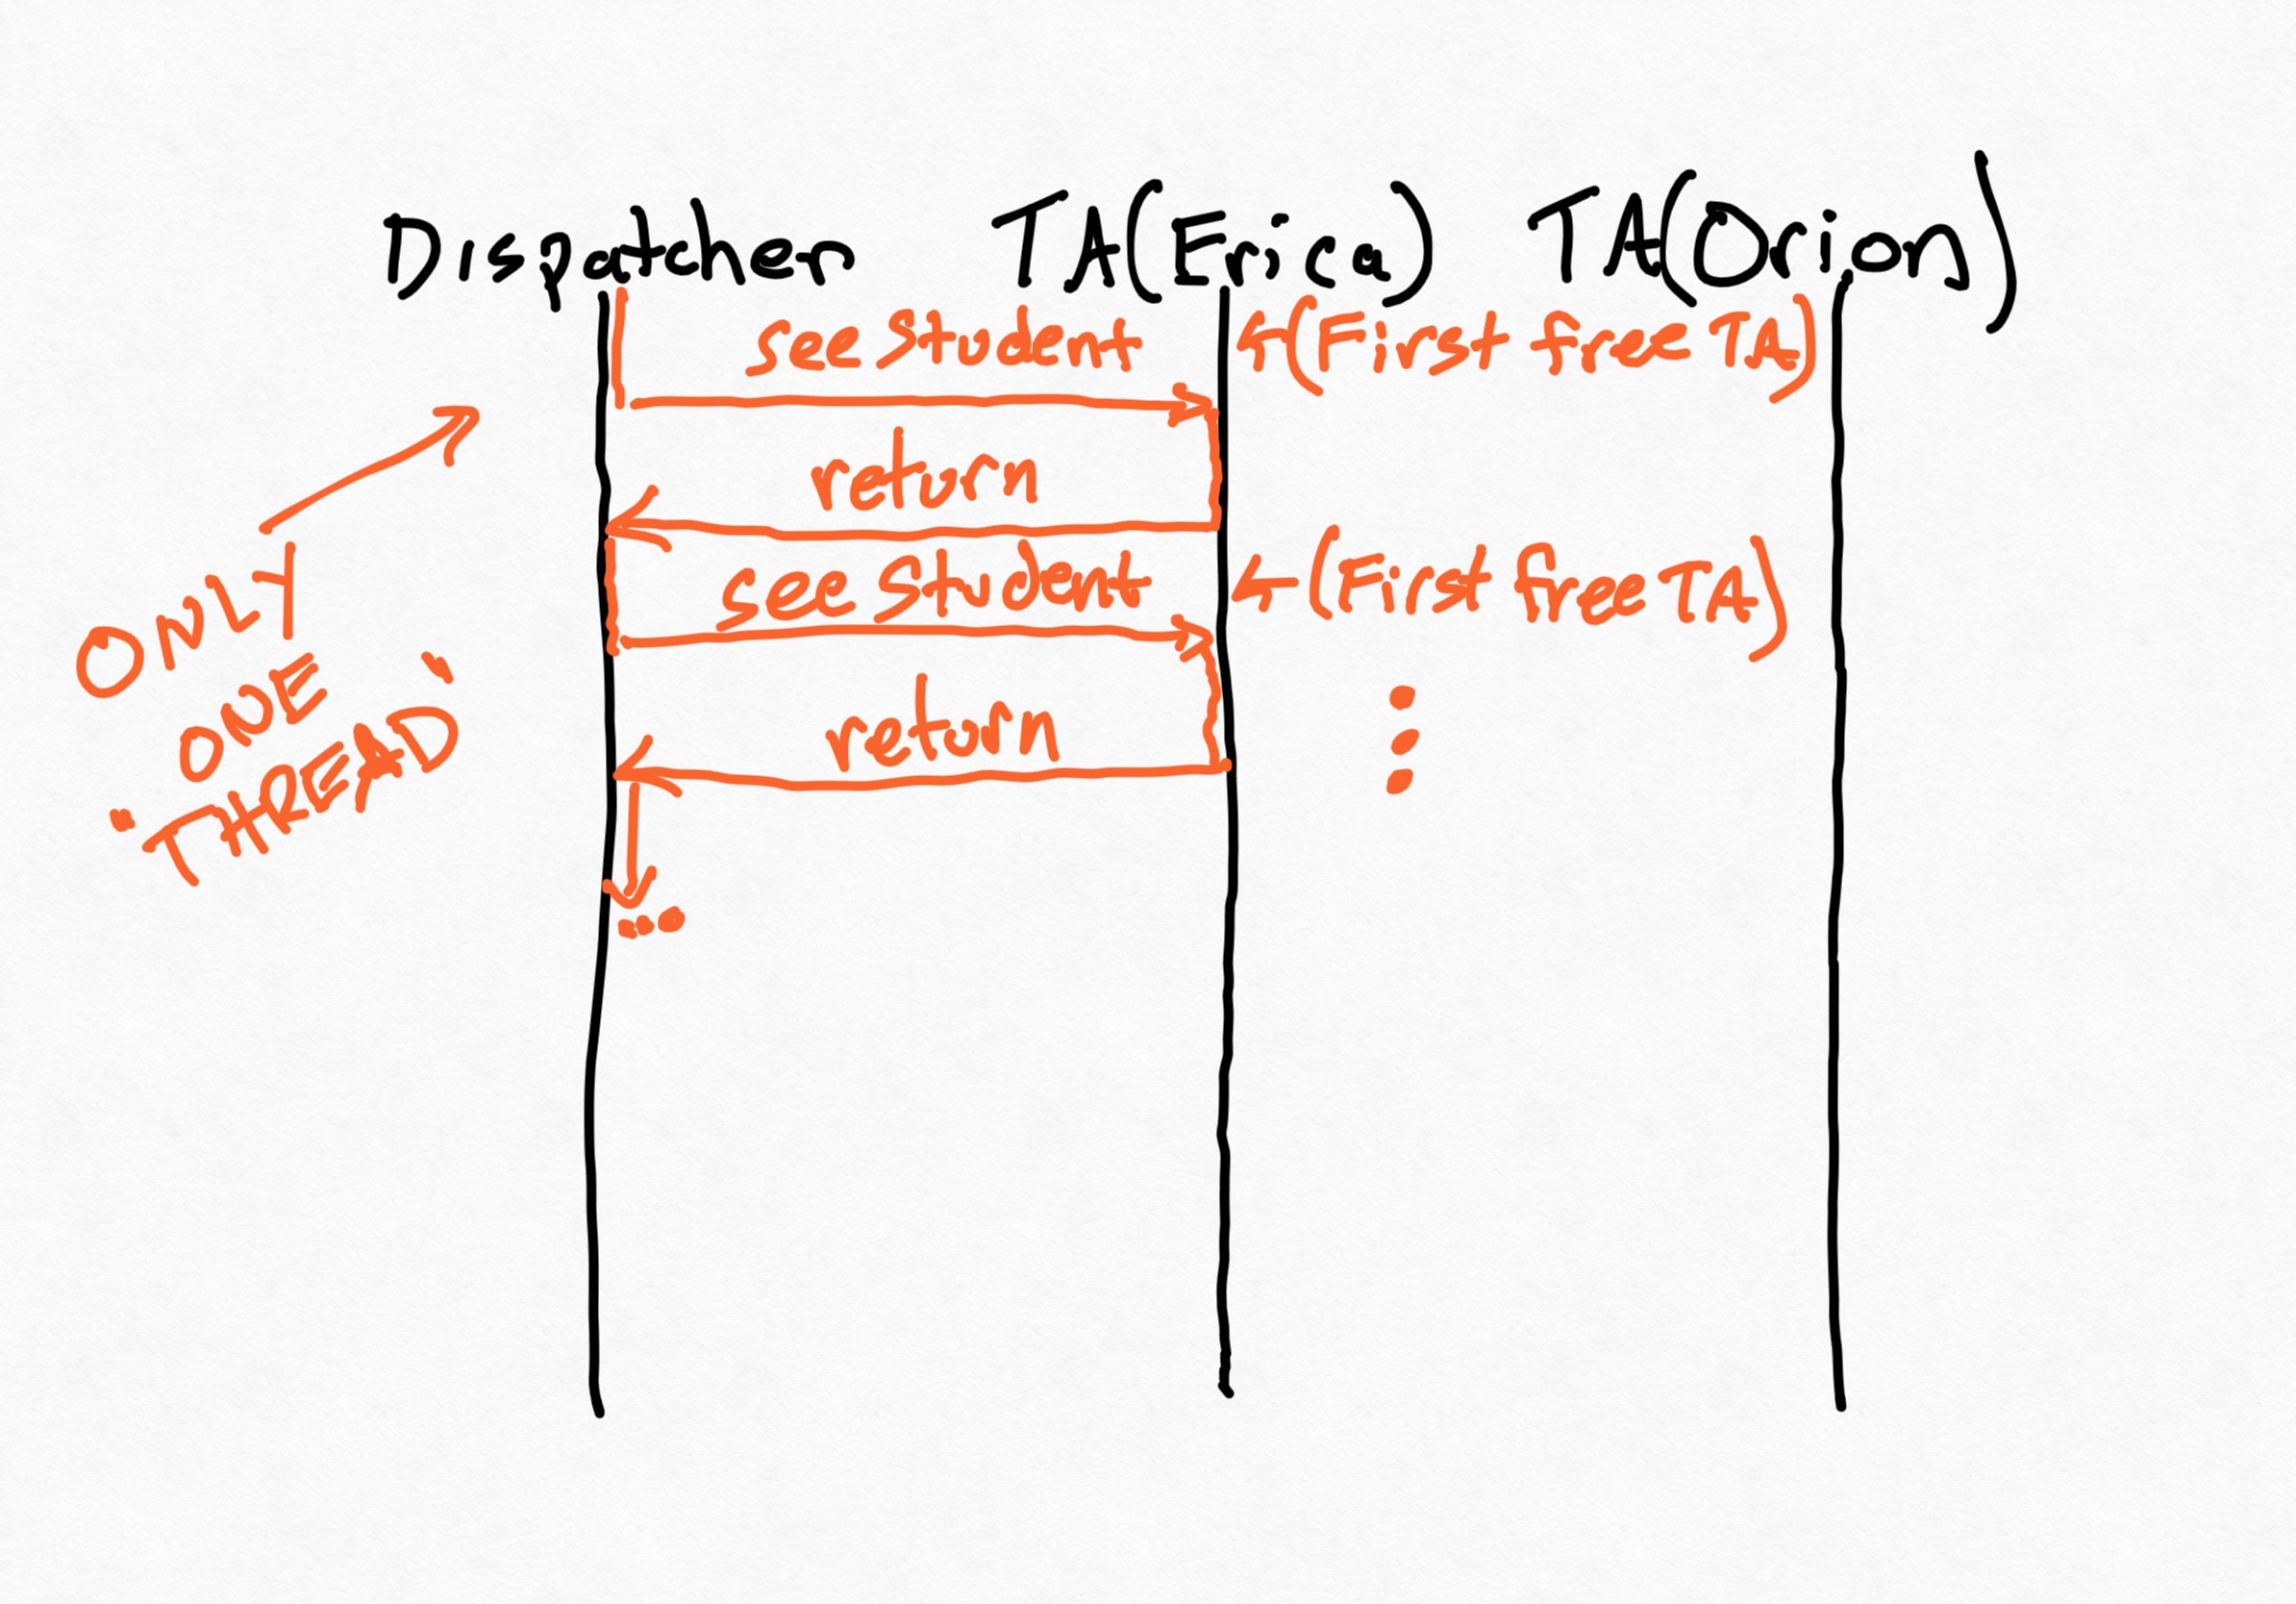 Dispatcher TA(Erica) TA(Orion)
see Student ←(First free TA)
return
see Student ←(First free TA)
return
ONLY
ONE
"THREAD"
...